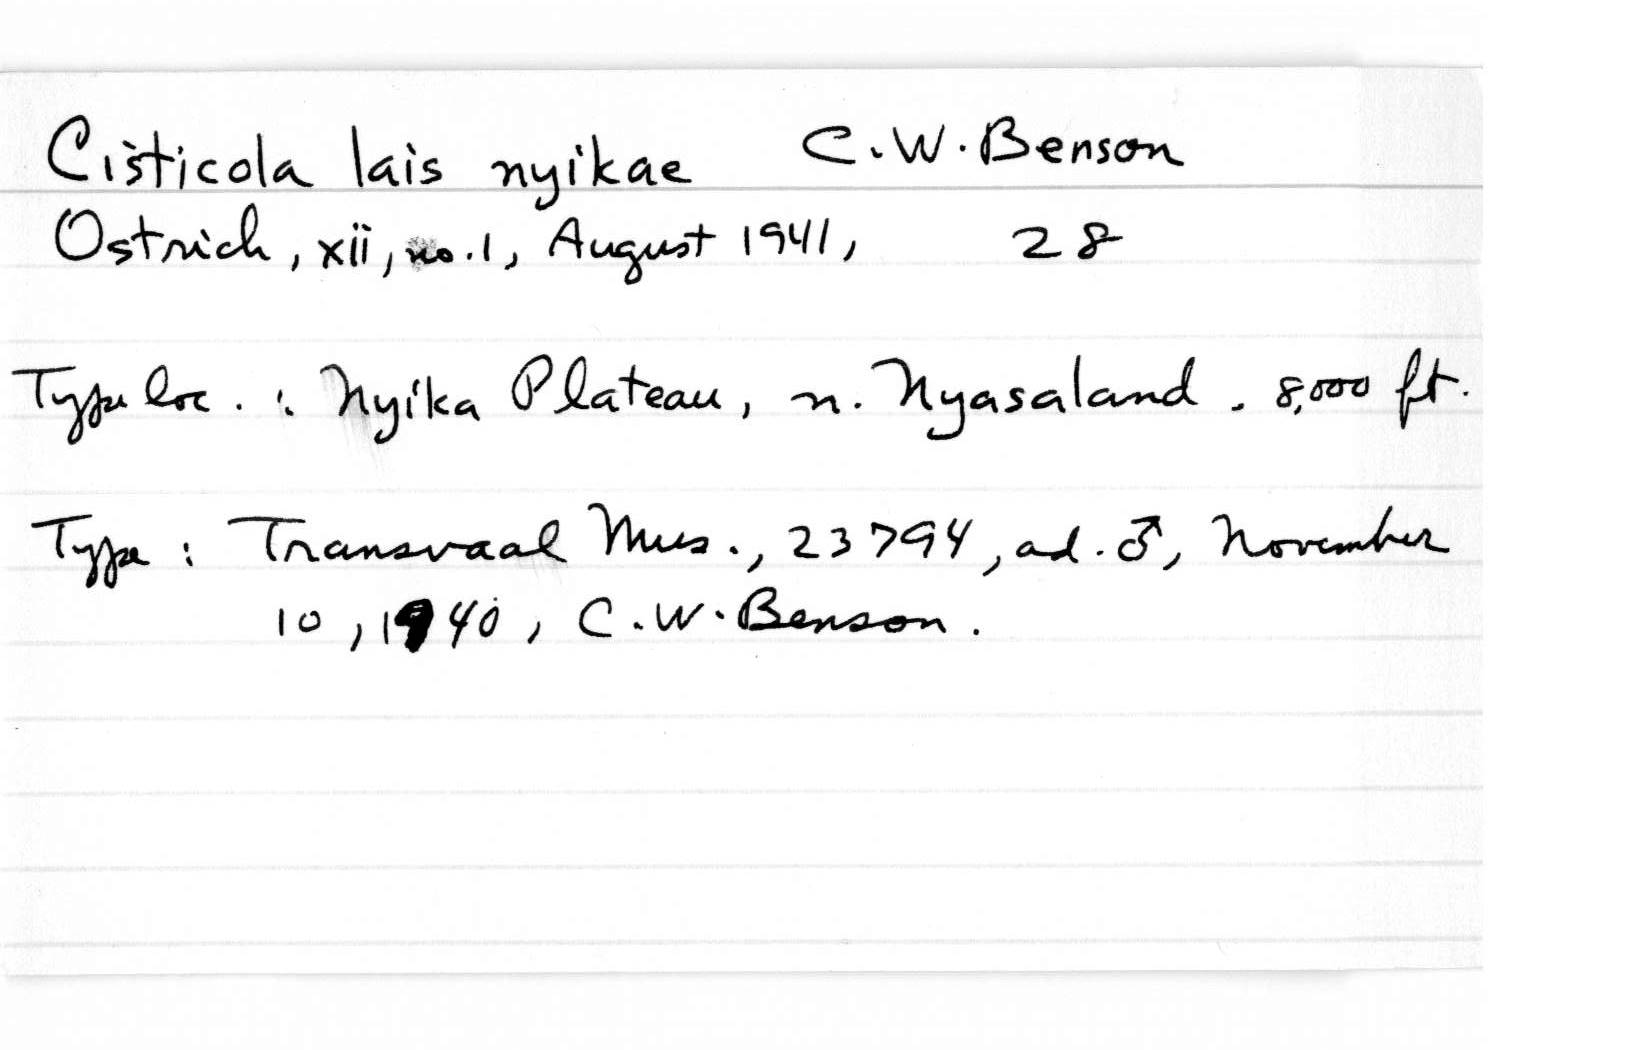 Cisticola lais nyikae C.W. Benson
Ostrich, xii, no. 1, August 1941, 28
Type loc. : Nyika Plateau, n. Nyasaland. 8,000 ft.
Type : Transvaal Mus., 23794, ad. ♂, November
10, 1940, C.W. Benson.